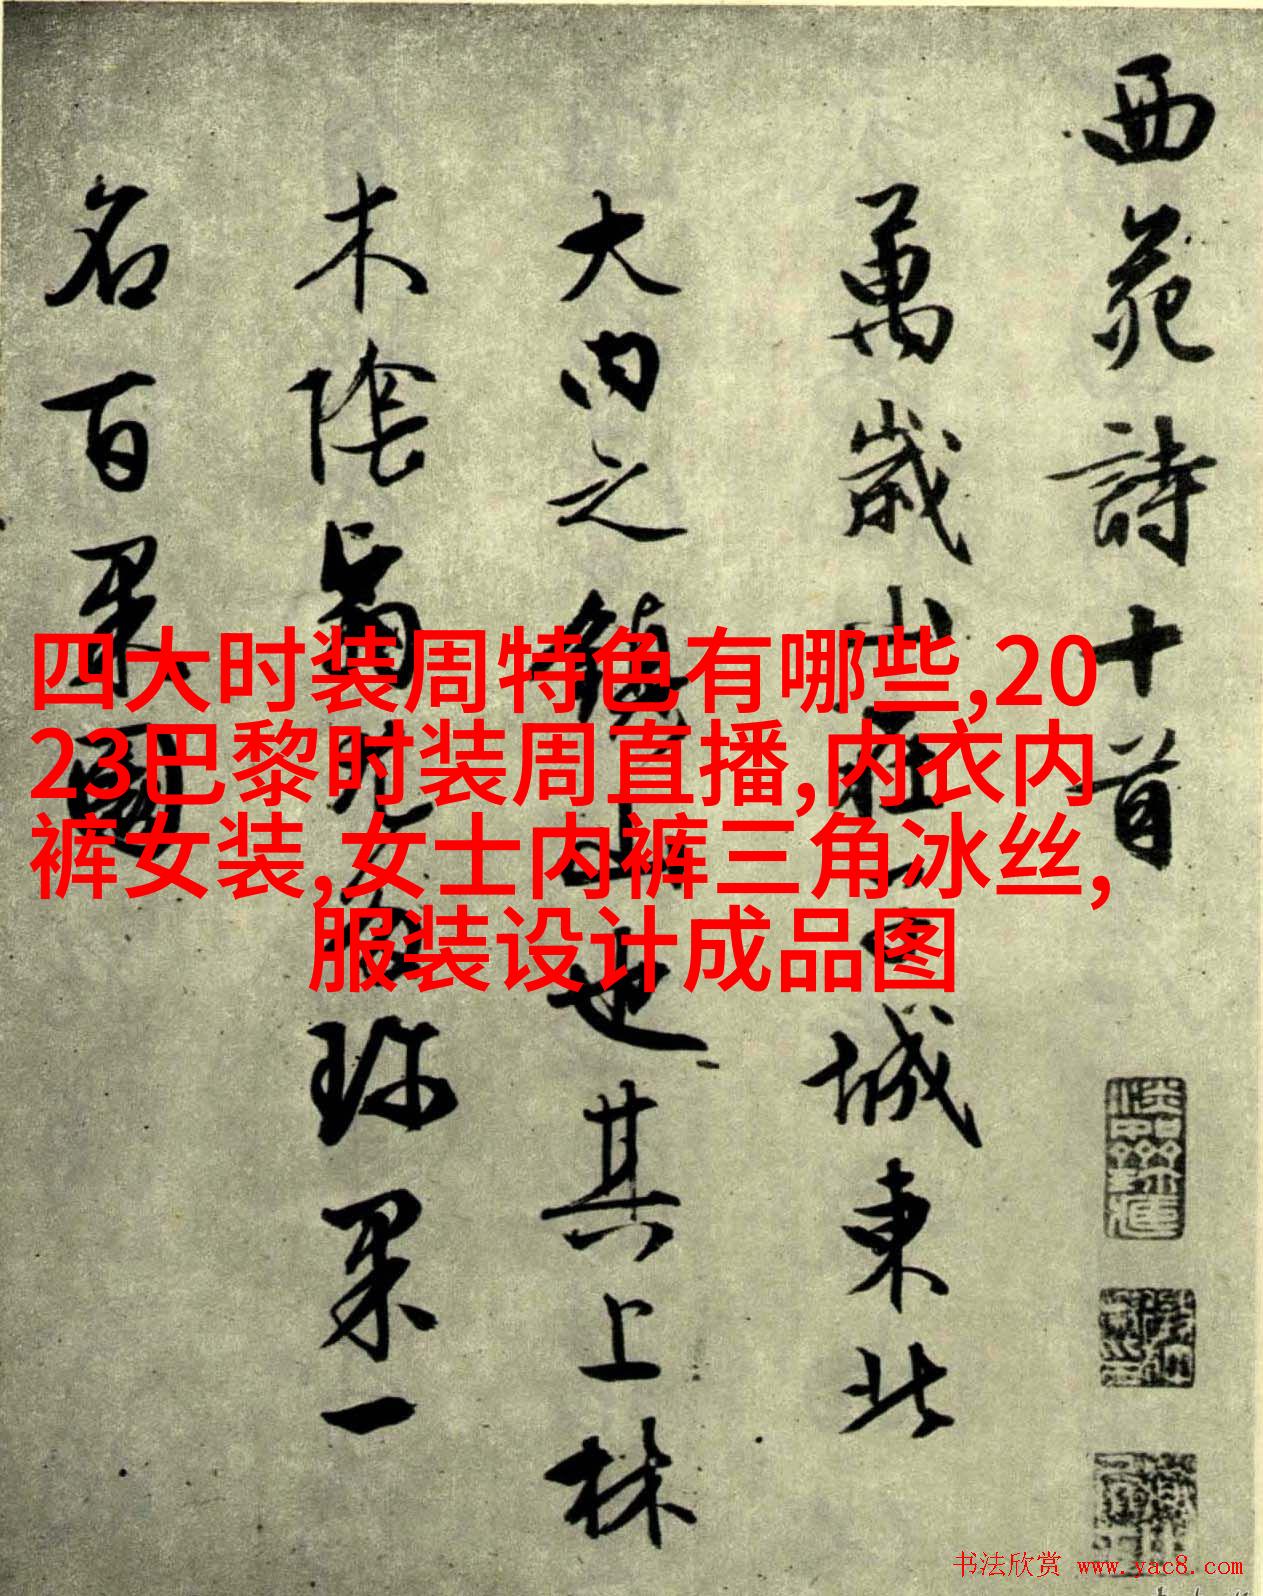 四大时装周特色有哪些,20
23巴黎时装周直播,内衣内
裤女装,女士内裤三角冰丝,
服装设计成品图
西苑詩十首
萬歲山在子城東北
大内之鎮山也其上林
木陰翳尤多珍果一
名百果園
书法欣赏 www.yac8.com